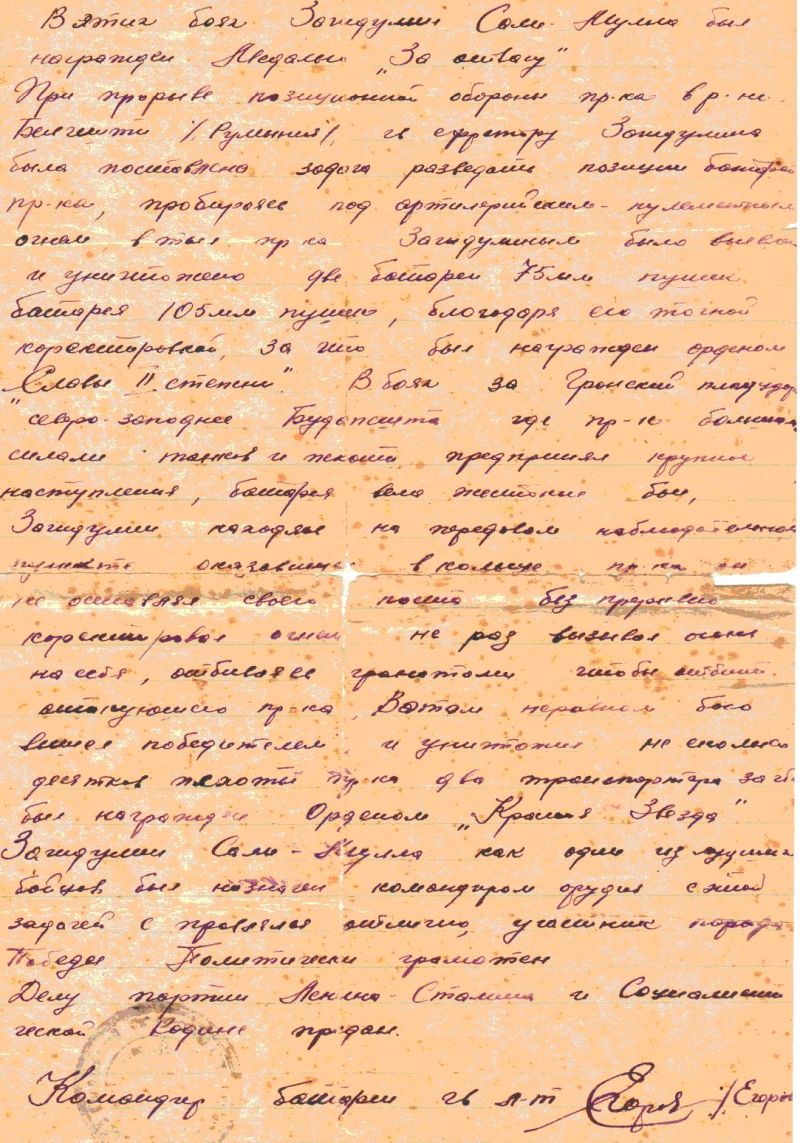 В этих боях Загидулин Сали-Мулла был
награжден Медалью „За отвагу"
При прорыве позиционной обороны пр-ка в р-не
/Румыния/, гв ефрейтору Загидулину
была поставлена задача разведать позиции батареи
пр-ка, пробираясь под артилерийским-пулеметным
огнем в тыл пр-ка Загидулиным было
и уничтожено две батареи 75мм пушек
батарея 105мм пушек, благодаря его точной
коректировкой, за что был награжден орденом
„Славы II степени" В боях за Гронский плацдарм
северо-западнее Будапешта где пр-к большими
силами танков и пехоты предпринял крупное
наступления, батарея вела жестокие бои,
Загидулин находясь на передовом наблюдательном
пункте оказавшись в кольце пр-ка он
не оставляя своего поста без прерывно
коректировал огнем не раз вызывал огонь
на себя, отбиваясь гранатами чтобы отбить
атакующего пр-ка, В этом неравном бою
вышел победителем и уничтожил не сколько
десятков пехоты пр-ка два транспортера за что
был награжден Орденом „Красная Звезда"
Загидулин Сали-Мулла как один из лучших
бойцов был назначен командиром орудия с этой
задачей с правлялся отлично, участник парада
Победы Политически грамотен
Делу партии Ленина-Сталина и Социалисти
ческой Родине предан.
Командир батареи гв л-т Егоров /Егоров